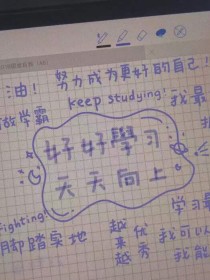 油！ 努力成为更好的自己！
做学霸 keep studying! 我最
好好學习
天天向上
fighting! 学习最
脚踏实地 越来越优秀 我可以
我能